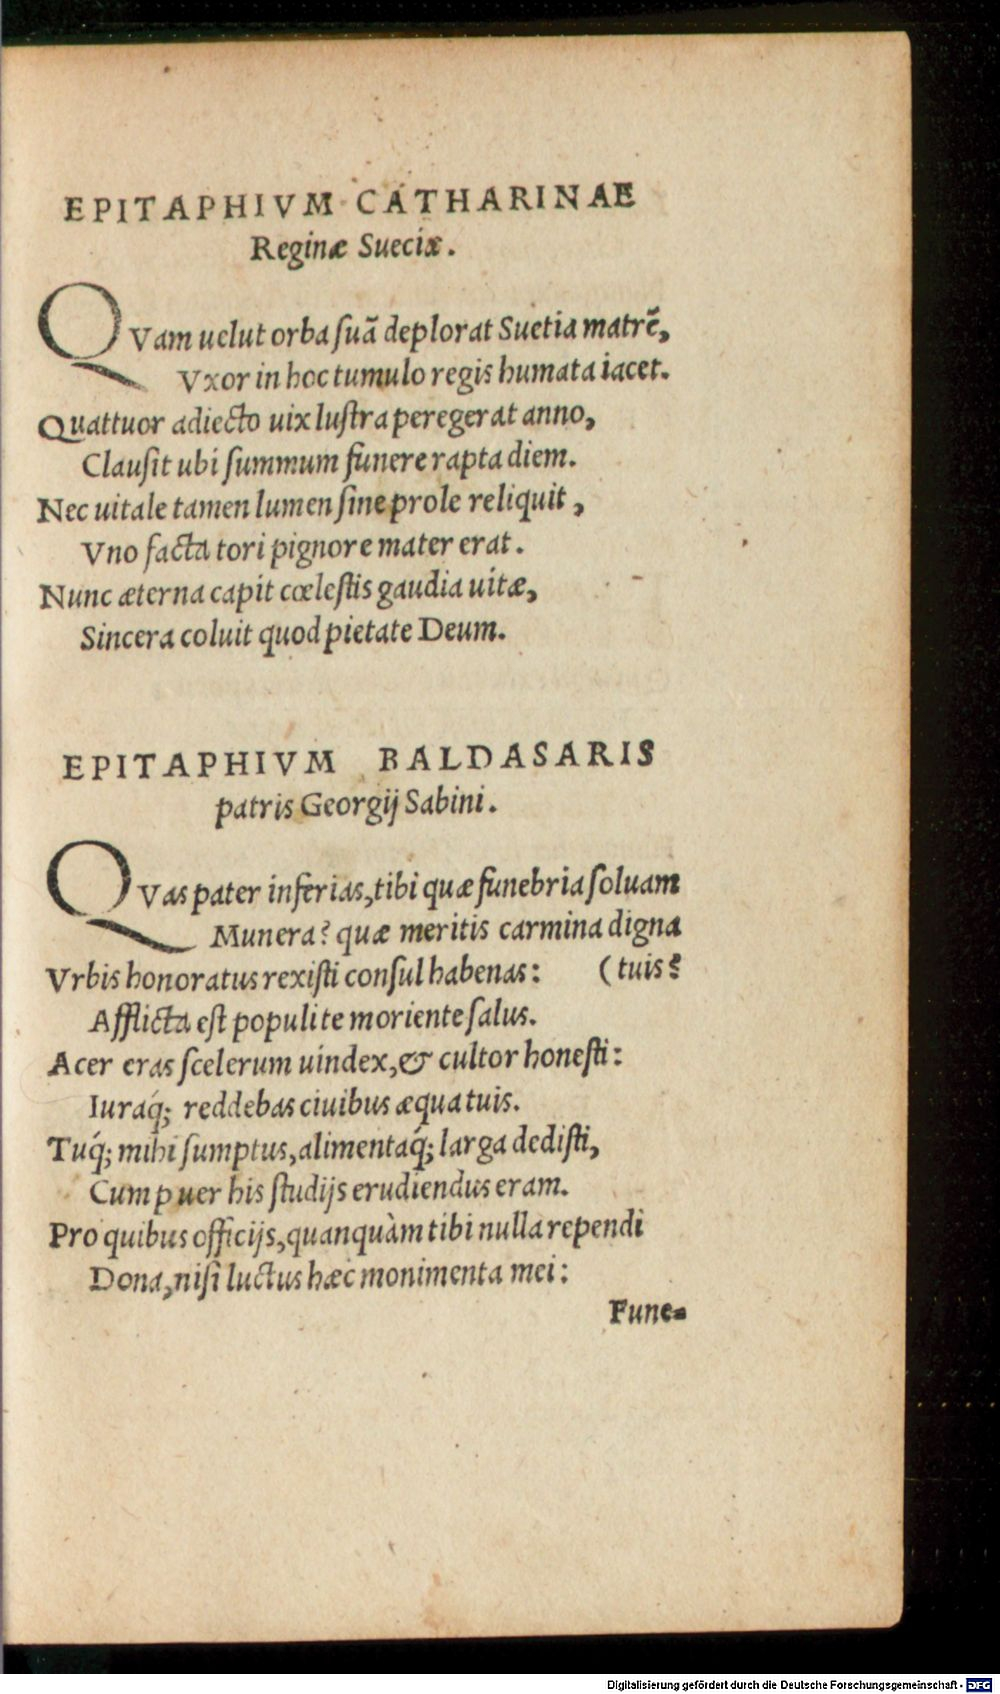 EPITAPHIVM CATHARINAE
Reginæ Sueciæ.
QVam uelut orba ſuā deplorat Suetia matrē,
Vxor in hoc tumulo regis humata iacet.
Quattuor adiecto uix luſtra peregerat anno,
Clauſit ubi ſummum funere rapta diem.
Nec uitale tamen lumen ſine prole reliquit,
Vno facta tori pignore mater erat.
Nunc æterna capit cœleſtis gaudia uitæ,
Sincera coluit quod pietate Deum.
EPITAPHIVM BALDASARIS
patris Georgij Sabini.
QVas pater inferias, tibi quæ funebria ſoluam
Munera? quæ meritis carmina digna
Vrbis honoratus rexiſti conſul habenas: (tuis?
Afflicta eſt populi te moriente ſalus.
Acer eras ſcelerum uindex, & cultor honeſti:
Iuraq́; reddebas ciuibus æqua tuis.
Tuq́; mihi ſumptus, alimentaq́; larga dediſti,
Cum puer his ſtudijs erudiendus eram.
Pro quibus officijs, quanquàm tibi nulla rependi
Dona, niſi luctus hæc monimenta mei:
Fune=
Digitalisierung gefördert durch die Deutsche Forschungsgemeinschaft - DFG